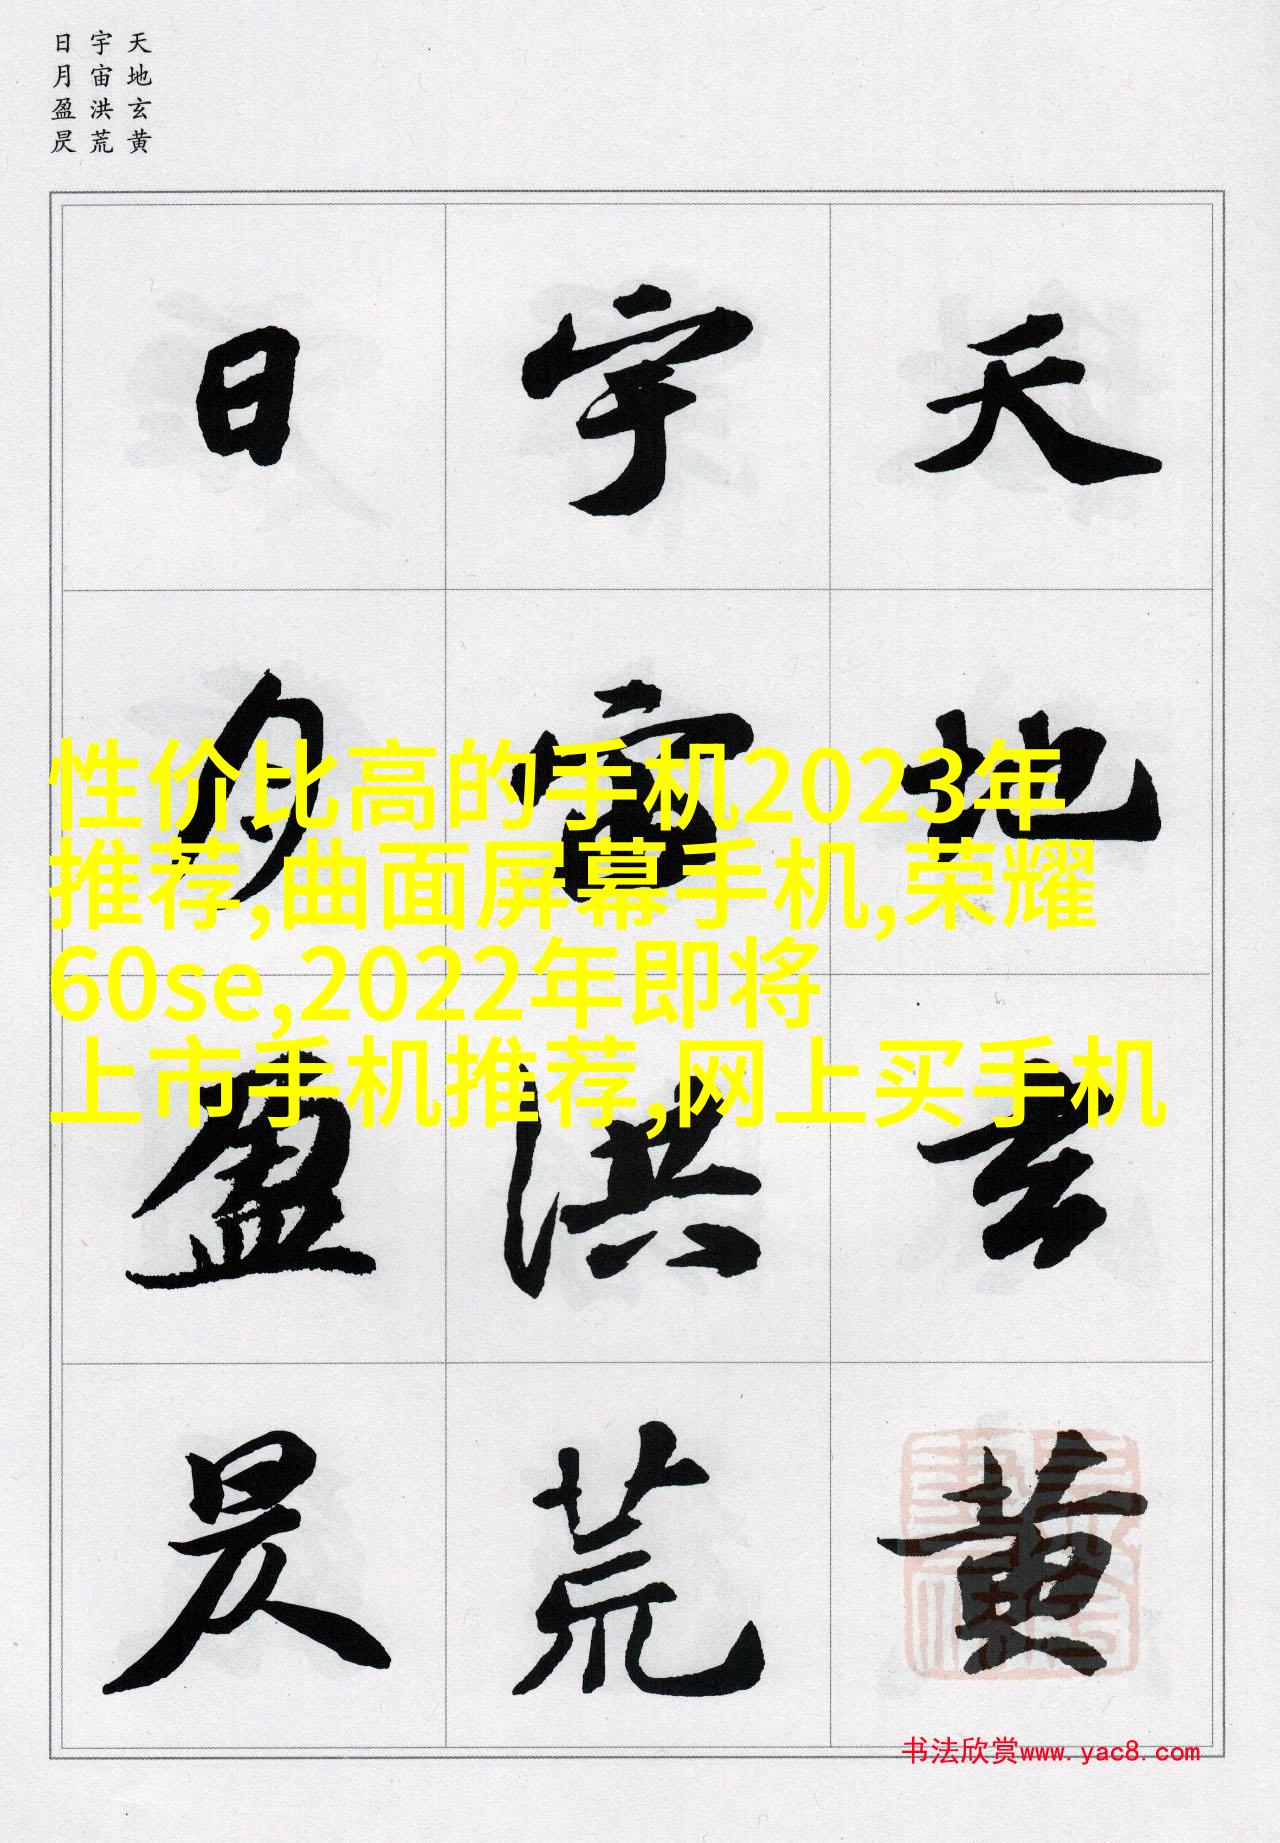 天地玄黄
宇宙洪荒
日月盈昃
天地玄黄
宇宙洪荒
日月盈昃
性价比高的手机2023年
推荐,曲面屏幕手机,荣耀
60se,2022年即将
上市手机推荐,网上买手机
书法欣赏www.yac8.com